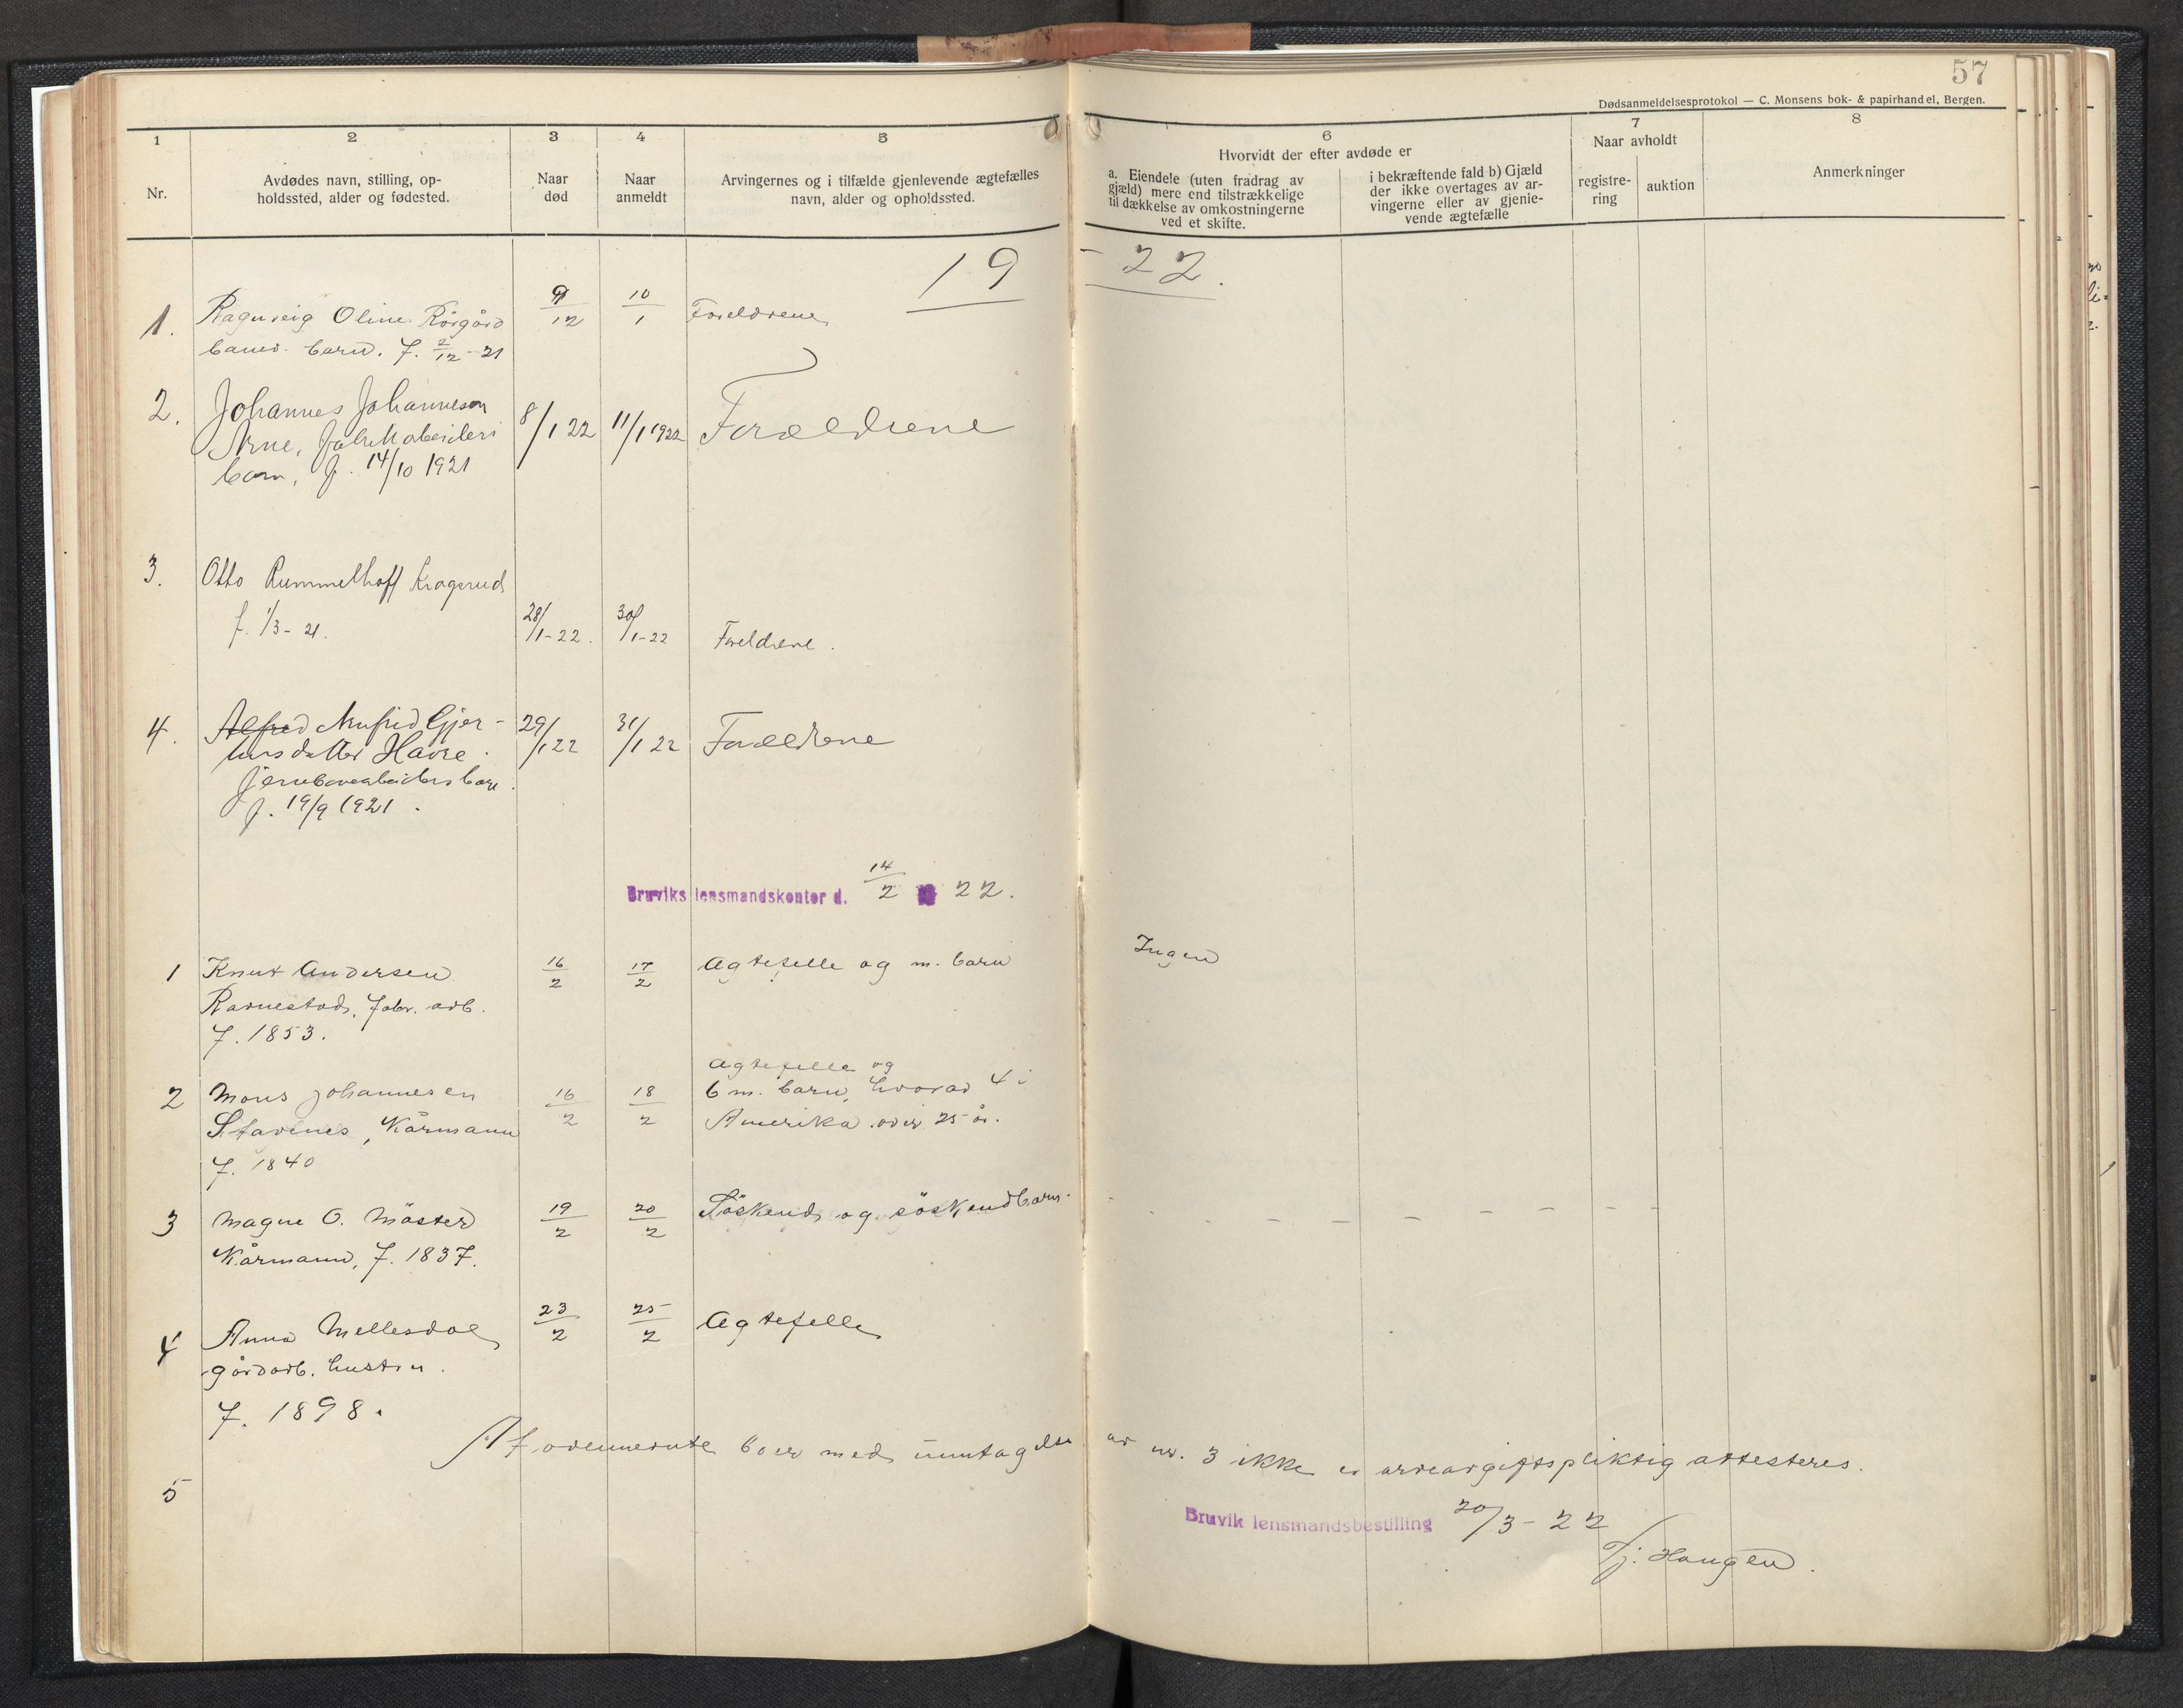 57
Dødsanmeldelsesprotokol — C. Monsens bok- & papirhandel, Bergen.
1 2 3 4 5 6 7 8
Nr.
Avdødes navn, stilling, op-
holdssted, alder og fødested.
Naar
død
Naar
anmeldt
Arvingernes og i tilfælde gjenlevende ægtefælles
navn, alder og opholdssted.
Hvorvidt der efter avdøde er
a. Eiendele (uten fradrag av
gjæld) mere end tilstrækkelige
til dækkelse av omkostningerne
ved et skifte.
i bekræftende fald b) Gjæld
der ikke overtages av ar-
vingerne eller av gjenle-
vende ægtefælle
Naar avholdt
registre-
ring
auktion
Anmerkninger
19 - 22.
1. Ragnveig Oline 9/12 10/1 Foreldrene
barn. f. 2/12-21
2. Johannes Johanneson 8/1 22 11/1 1922 Forældrene
Arne, fabrikarbeiders
barn, f. 14/10 1921
3. Otto Rummelhoff Kragerud
f. 1/3-21. 28/1-22. 30/1-22 Foreldrene.
4. Alfred Arnfrid Gjer- 29/1 22 31/1 22 Forældrene
tursdatter Havre.
Jernbanearbeiders barn.
f. 19/9 1921.
Bruviks lensmandskontor d. 14/2 22.
1 Knut Andersen 16/2 17/2 Ægtefelle og m. barn Ingen
Ravnestad, fabr. arb.
f. 1853.
2 Mons Johannesen 16/2 18/2 Ægtefelle og
Stavenes, Kårmann 6 m. barn, hvorav 4 i
f. 1840 Amerika over 25 år.
3 Magne O. Mäster 19/2 20/2 Söskend og söskendbarn. - - - - - - - -
Kårmann, f. 1837.
4 Anna Mellesdal 23/2 25/2 Ægtefelle
gårdarb. hustru.
f. 1898.
At ovennevnte boer med unntagelse av nr. 3 ikke er arveavgiftspliktig attesteres.
5
Bruvik lensmandsbestilling 20/3-22
Tj. Haugen.